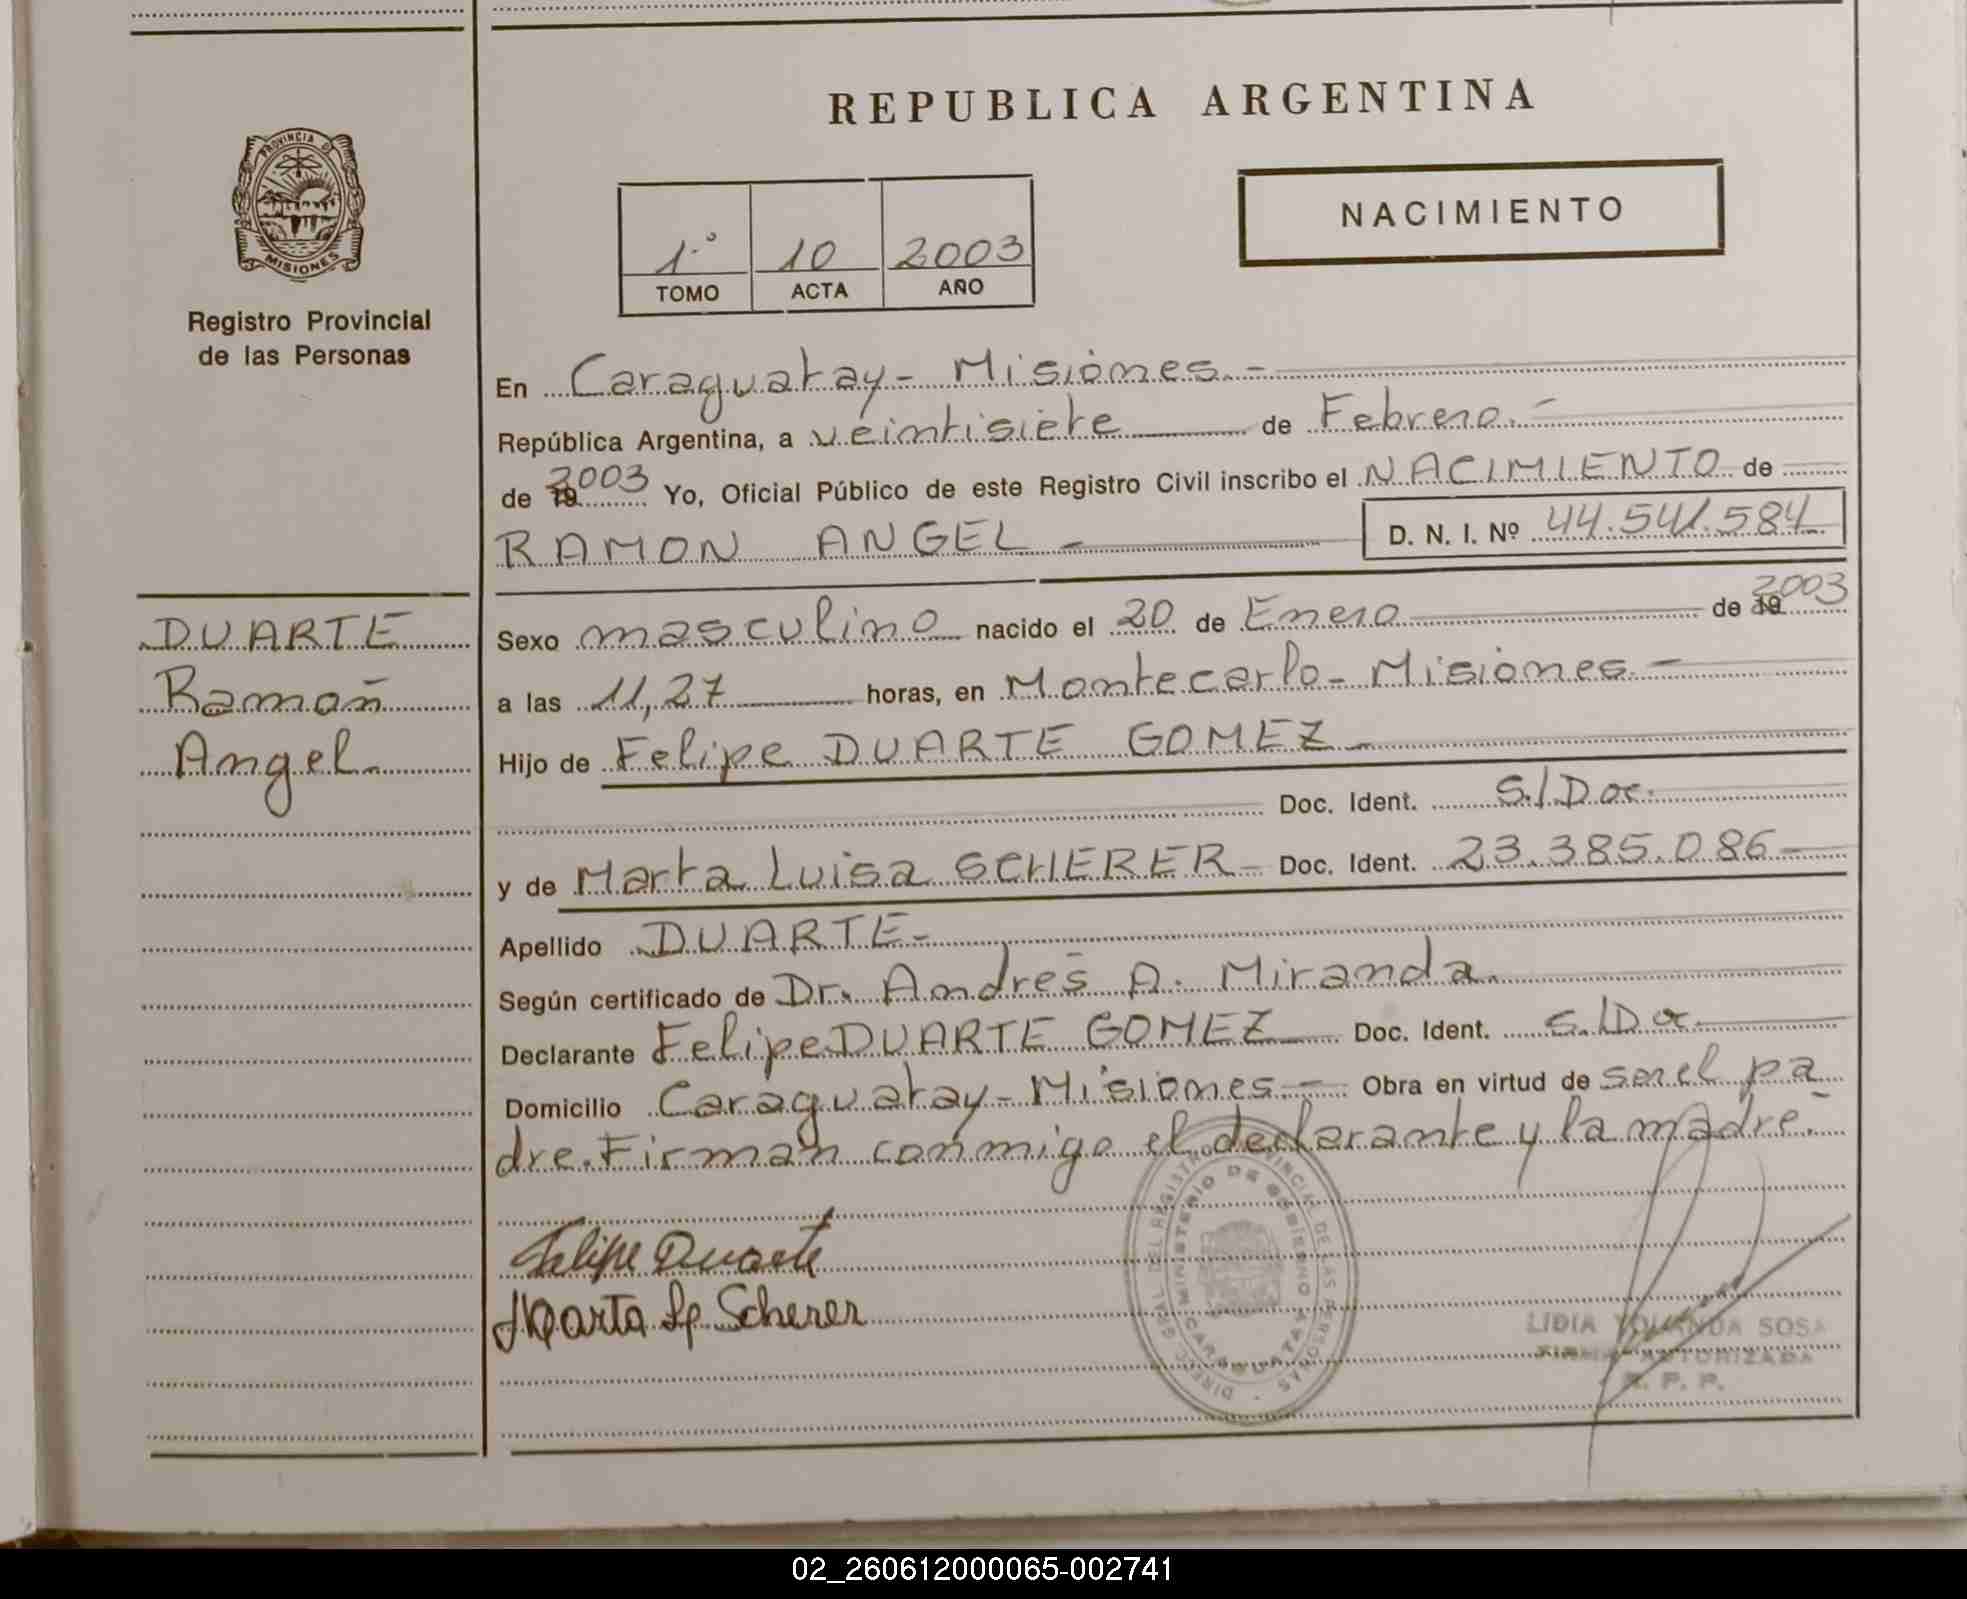 REPUBLICA ARGENTINA
PROVINCIA D
MISIONES
Registro Provincial
de las Personas
1.º 10 2003
TOMO ACTA AÑO
NACIMIENTO
En Caraguatay - Misiones. -
República Argentina, a veintisiete de Febrero. -
de 19 2003 Yo, Oficial Público de este Registro Civil inscribo el NACIMIENTO de
RAMON ANGEL - D. N. I. Nº 44.541.584
DUARTE
Ramón
Angel.
Sexo masculino nacido el 20 de Enero de 19 2003
a las 11,27 horas, en Montecarlo - Misiones. -
Hijo de Felipe DUARTE GOMEZ -
Doc. Ident. S/Doc.
y de Marta Luisa SCHERER - Doc. Ident. 23.385.086 -
Apellido DUARTE -
Según certificado de Dr. Andrés A. Miranda.
Declarante Felipe DUARTE GOMEZ Doc. Ident. S/Doc.
Domicilio Caraguatay - Misiones - Obra en virtud de ser el pa
dre. Firman conmigo el declarante y la madre. -
Felipe Duarte
Marta L. Scherer
DIREC. GRAL DEL REGISTRO PROVINCIAL DE LAS PERSONAS
MINISTERIO DE GOBIERNO
CARAGUATAY
LIDIA YOLANDA SOSA
FIRMA AUTORIZADA
R. P. P.
02_260612000065-002741